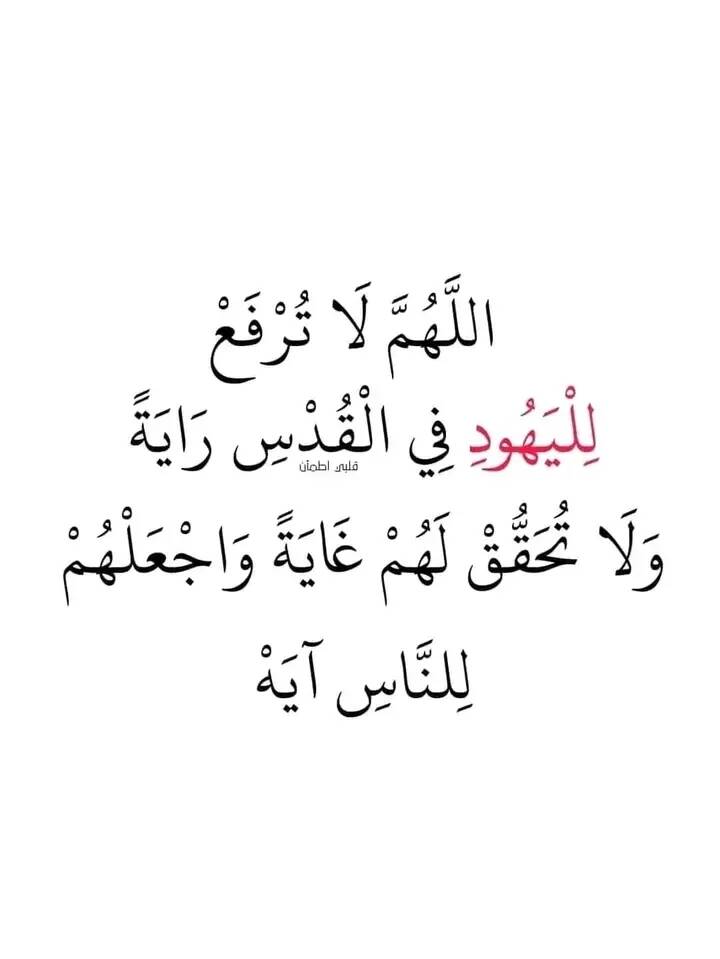 اللَّهُمَّ لَا تُرْفَعْ
لِلْيَهُودِ فِي الْقُدْسِ رَايَةً
قلبي اطمأن
وَلَا تُحَقُّقْ لَهُمْ غَايَةً وَاجْعَلْهُمْ
لِلنَّاسِ آيَهْ